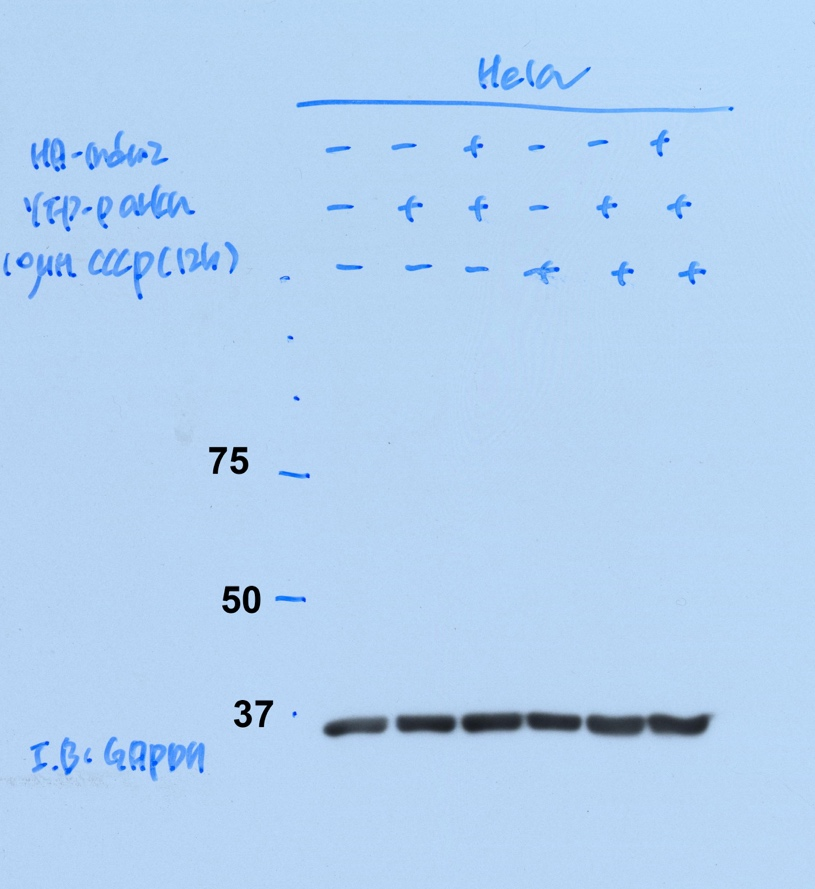 Hela
HA-mdm2 - - + - - +
YFP-parkin - + + - + +
10μM CCCP(12h) - - - + + +
75
50
37
I.B: GAPDH